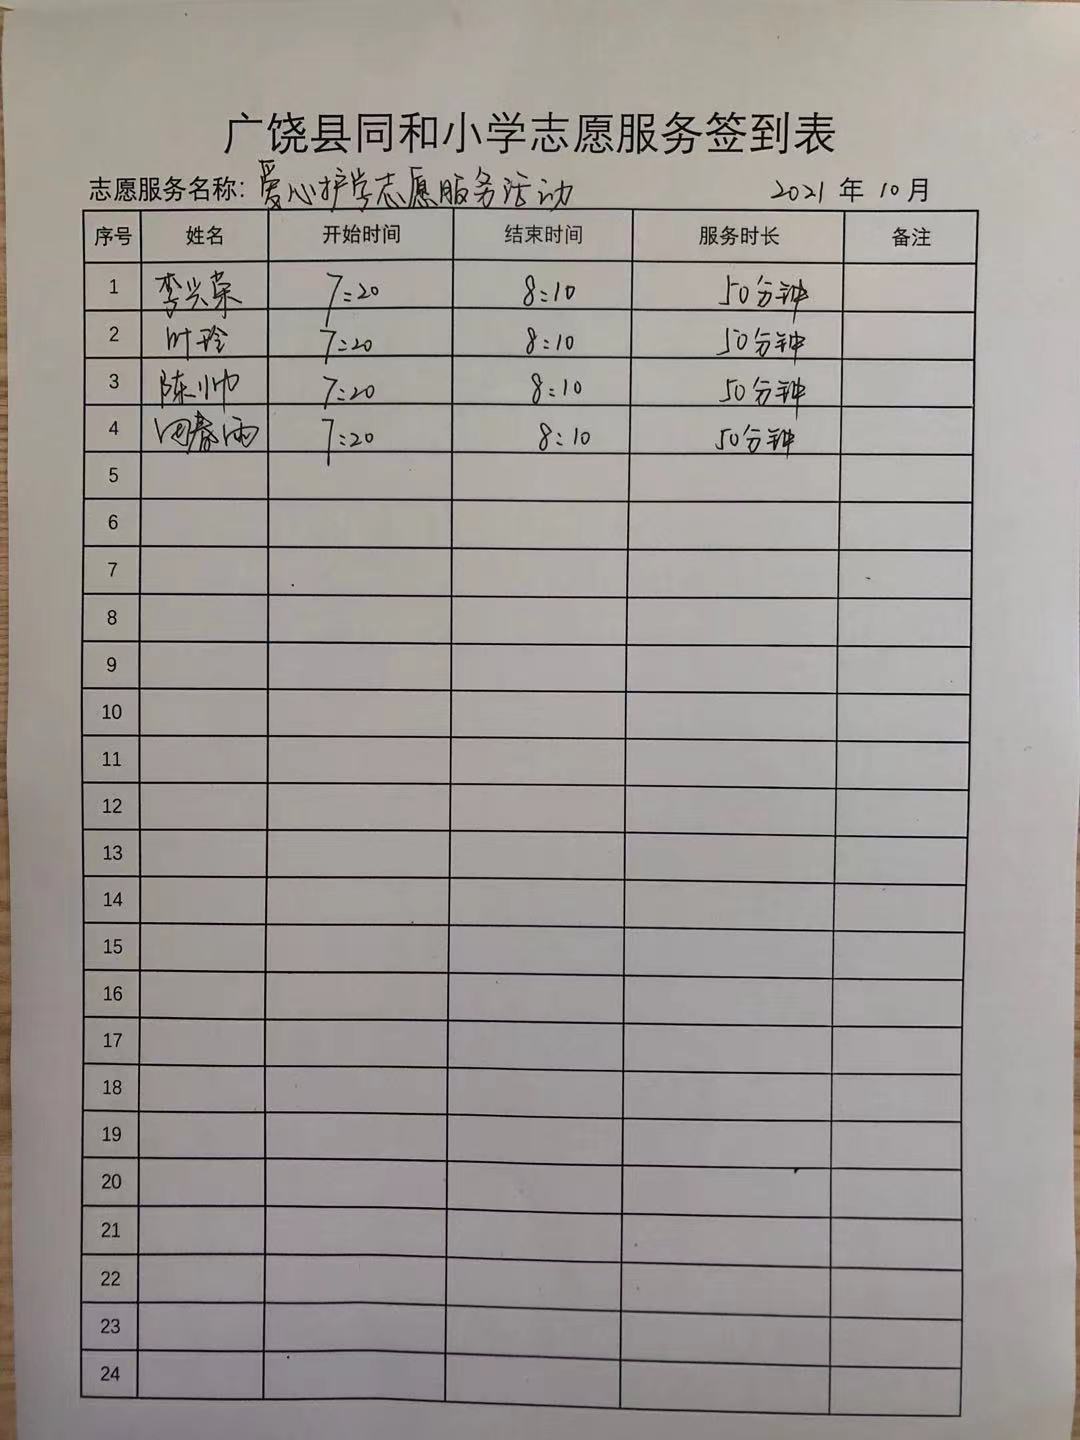 广饶县同和小学志愿服务签到表
志愿服务名称：爱心护学志愿服务活动 2021 年 10 月
序号 姓名 开始时间 结束时间 服务时长 备注
1 李兴荣 7:20 8:10 50分钟
2 叶玲 7:20 8:10 50分钟
3 陈帅 7:20 8:10 50分钟
4 春雨 7:20 8:10 50分钟
5
6
7
8
9
10
11
12
13
14
15
16
17
18
19
20
21
22
23
24